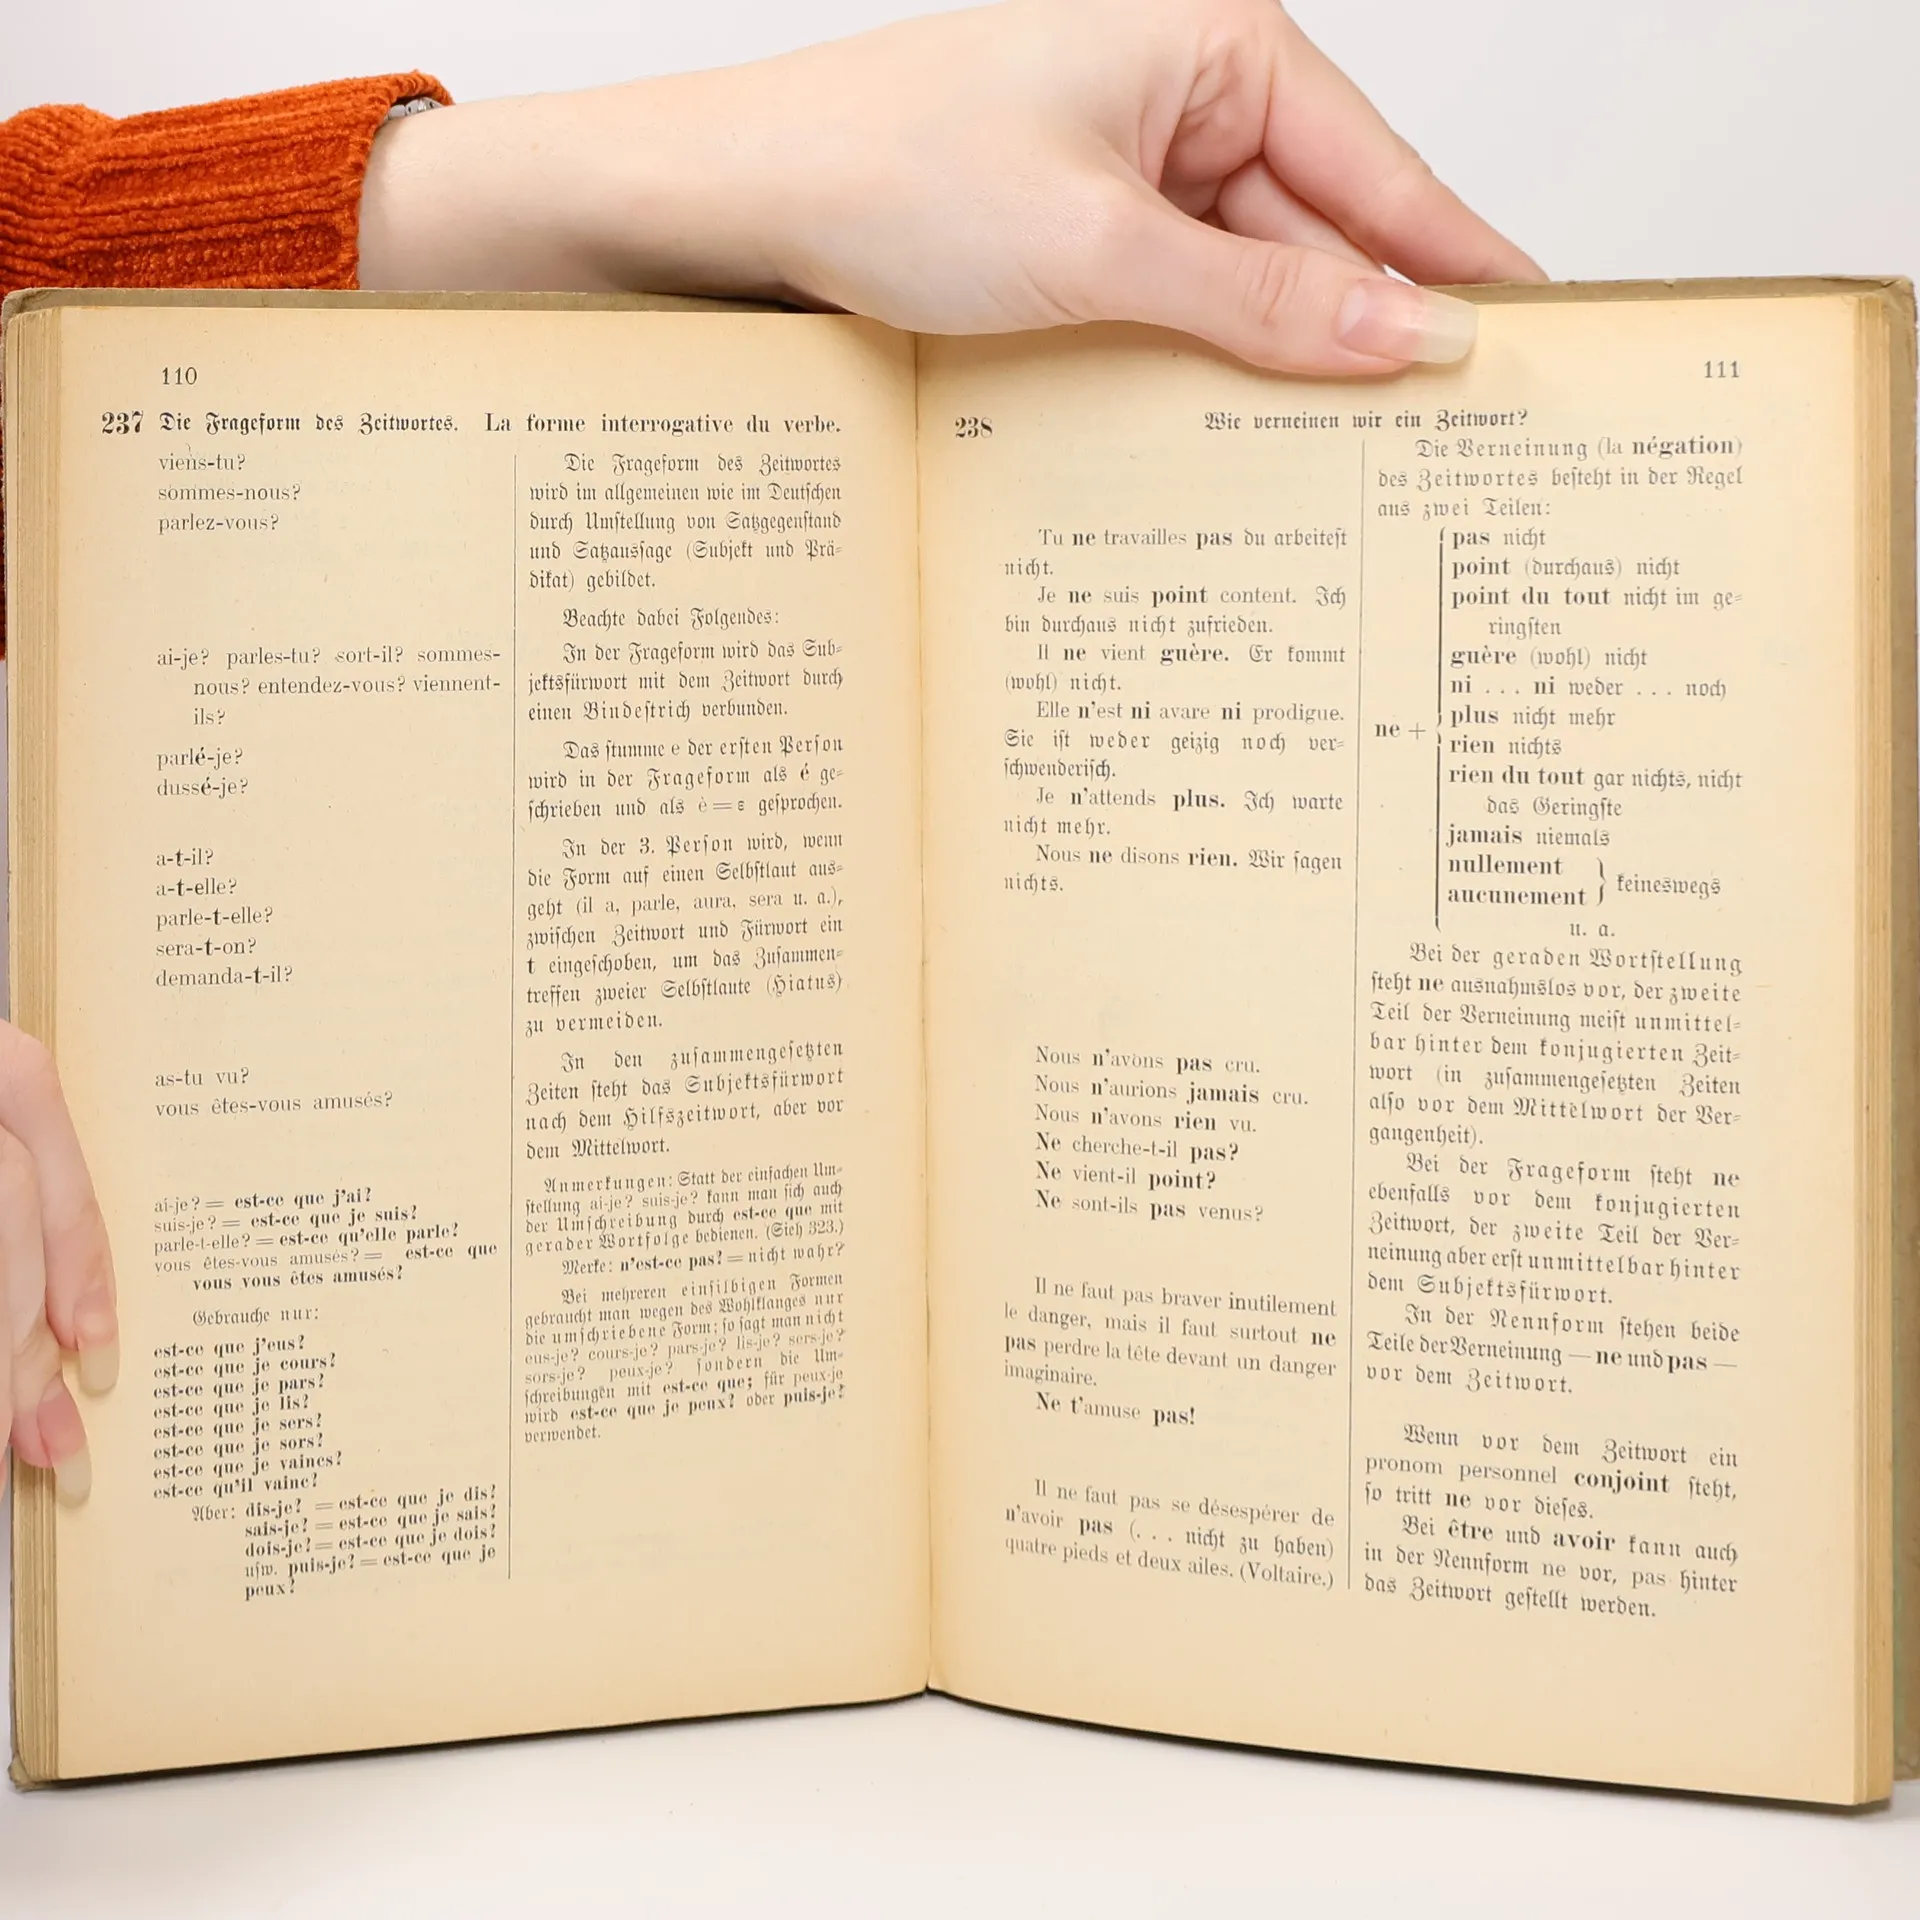 110
237 Die Frageform des Zeitwortes. La forme interrogative du verbe.
viens-tu?
sommes-nous?
parlez-vous?
ai-je? parles-tu? sort-il? sommes-
nous? entendez-vous? viennent-
ils?
parlé-je?
dussé-je?
a-t-il?
a-t-elle?
parle-t-elle?
sera-t-on?
demanda-t-il?
as-tu vu?
vous êtes-vous amusés?
ai-je? = est-ce que j'ai?
suis-je? = est-ce que je suis?
parle-t-elle? = est-ce qu'elle parle?
vous êtes-vous amusés? = est-ce que
vous vous êtes amusés?
Gebrauche nur:
est-ce que j'eus?
est-ce que je cours?
est-ce que je pars?
est-ce que je lis?
est-ce que je sers?
est-ce que je sors?
est-ce que je vaincs?
est-ce qu'il vainc?
Aber: dis-je? = est-ce que je dis?
sais-je? = est-ce que je sais?
dois-je? = est-ce que je dois?
uſw. puis-je? = est-ce que je
peux?
Die Frageform des Zeitwortes
wird im allgemeinen wie im Deutſchen
durch Umſtellung von Satzgegenſtand
und Satzausſage (Subjekt und Prä-
dikat) gebildet.
Beachte dabei Folgendes:
In der Frageform wird das Sub-
jektsfürwort mit dem Zeitwort durch
einen Bindeſtrich verbunden.
Das ſtumme e der erſten Perſon
wird in der Frageform als é ge-
ſchrieben und als è = ɛ geſprochen.
In der 3. Perſon wird, wenn
die Form auf einen Selbſtlaut aus-
geht (il a, parle, aura, sera u. a.),
zwiſchen Zeitwort und Fürwort ein
t eingeſchoben, um das Zuſammen-
treffen zweier Selbſtlaute (Hiatus)
zu vermeiden.
In den zuſammengeſetzten
Zeiten ſteht das Subjektsfürwort
nach dem Hilfszeitwort, aber vor
dem Mittelwort.
Anmerkungen: Statt der einfachen Um-
ſtellung ai-je? suis-je? kann man ſich auch
der Umſchreibung durch est-ce que mit
gerader Wortfolge bedienen. (Sieh 323.)
Merke: n'est-ce pas? = nicht wahr?
Bei mehreren einſilbigen Formen
gebraucht man wegen des Wohlklanges nur
die umſchriebene Form; ſo ſagt man nicht
eus-je? cours-je? pars-je? lis-je? sers-je?
sors-je? peux-je? ſondern die Um-
ſchreibungen mit est-ce que; für peux-je
wird est-ce que je peux? oder puis-je?
verwendet.
111
238 Wie verneinen wir ein Zeitwort?
Tu ne travailles pas du arbeiteſt
nicht.
Je ne suis point content. Ich
bin durchaus nicht zufrieden.
Il ne vient guère. Er kommt
(wohl) nicht.
Elle n'est ni avare ni prodigue.
Sie iſt weder geizig noch ver-
ſchwenderiſch.
Je n'attends plus. Ich warte
nicht mehr.
Nous ne disons rien. Wir ſagen
nichts.
Nous n'avons pas cru.
Nous n'aurions jamais cru.
Nous n'avons rien vu.
Ne cherche-t-il pas?
Ne vient-il point?
Ne sont-ils pas venus?
Il ne faut pas braver inutilement
le danger, mais il faut surtout ne
pas perdre la tête devant un danger
imaginaire.
Ne t'amuse pas!
Il ne faut pas se désespérer de
n'avoir pas (. . . nicht zu haben)
quatre pieds et deux ailes. (Voltaire.)
Die Verneinung (la négation)
des Zeitwortes beſteht in der Regel
aus zwei Teilen:
pas nicht
point (durchaus) nicht
point du tout nicht im ge-
ringſten
guère (wohl) nicht
ni . . . ni weder . . . noch
plus nicht mehr
ne +
rien nichts
rien du tout gar nichts, nicht
das Geringſte
jamais niemals
nullement
aucunement } keineswegs
u. a.
Bei der geraden Wortſtellung
ſteht ne ausnahmslos vor, der zweite
Teil der Verneinung meiſt unmittel-
bar hinter dem konjugierten Zeit-
wort (in zuſammengeſetzten Zeiten
alſo vor dem Mittelwort der Ver-
gangenheit).
Bei der Frageform ſteht ne
ebenfalls vor dem konjugierten
Zeitwort, der zweite Teil der Ver-
neinung aber erſt unmittelbar hinter
dem Subjektsfürwort.
In der Nennform ſtehen beide
Teile der Verneinung — ne und pas —
vor dem Zeitwort.
Wenn vor dem Zeitwort ein
pronom personnel conjoint ſteht,
ſo tritt ne vor dieſes.
Bei être und avoir kann auch
in der Nennform ne vor, pas hinter
das Zeitwort geſtellt werden.